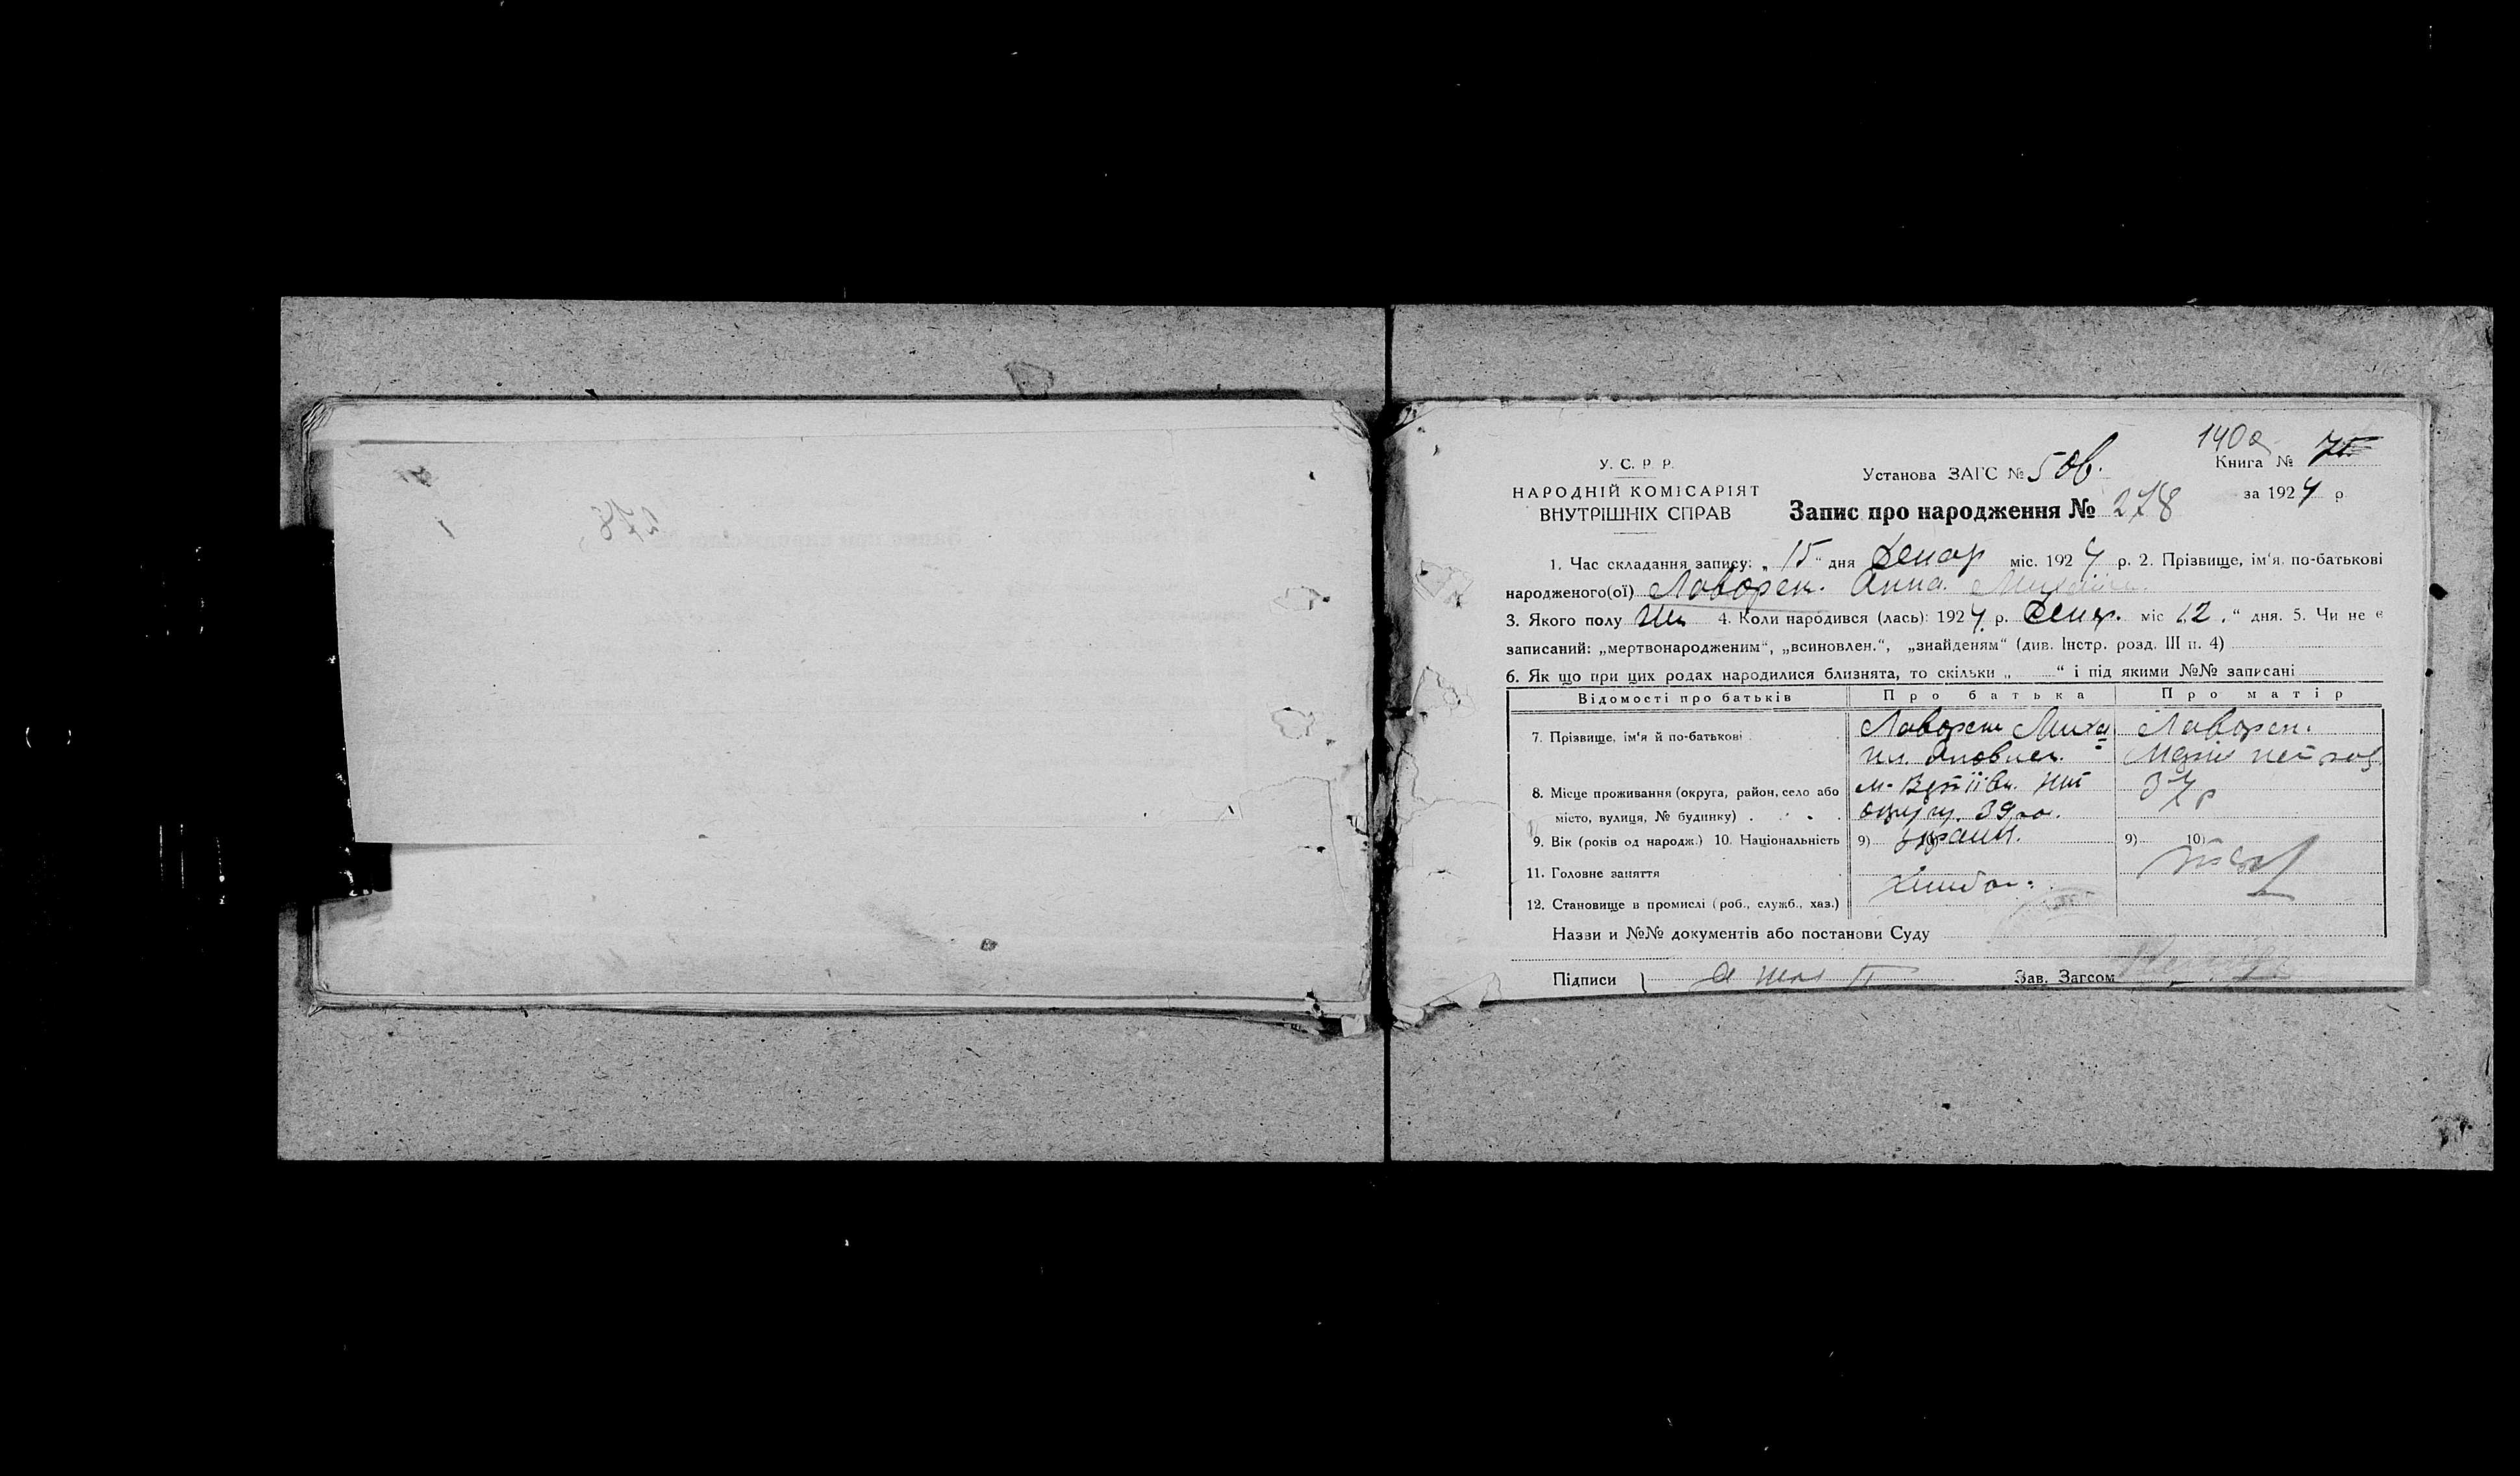 140а
У. С. Р. Р.
НАРОДНІЙ КОМІСАРІЯТ
ВНУТРІШНІХ СПРАВ
Установа ЗАГС № 5 об.
Книга № 75
за 1924 р.
Запис про народження № 278
1. Час складання запису: „15“ дня Декар міс. 1924 р. 2. Прізвище, ім'я, по-батькові
народженого(ої) Лаворен. Анна.
3. Якого полу жін 4. Коли народився (лась): 1924 р. Декар. міс „12.“ дня. 5. Чи не є
записаний: „мертвонародженим“, „всиновлен.“, „знайденям“ (див. Інстр. розд. III п. 4)
6. Як що при цих родах народилися близнята, то скільки „ “ і під якими №№ записані
Відомості про батьків Про батька Про матір
7. Прізвище, ім'я й по-батькові Лаворен Миха Лаворен.
Марія Петров
8. Місце проживання (округа, район, село або м. Ніж 37 р
місто, вулиця, № будинку) округи. 39 ро.
9. Вік (років од народж.) 10. Національність 9) 10) Украін. 9) 10)
11. Головне заняття
12. Становище в промислі (роб., служб., хаз.) хлибор.
Назви и №№ документів або постанови Суду
Підписи Зав. Загсом
278